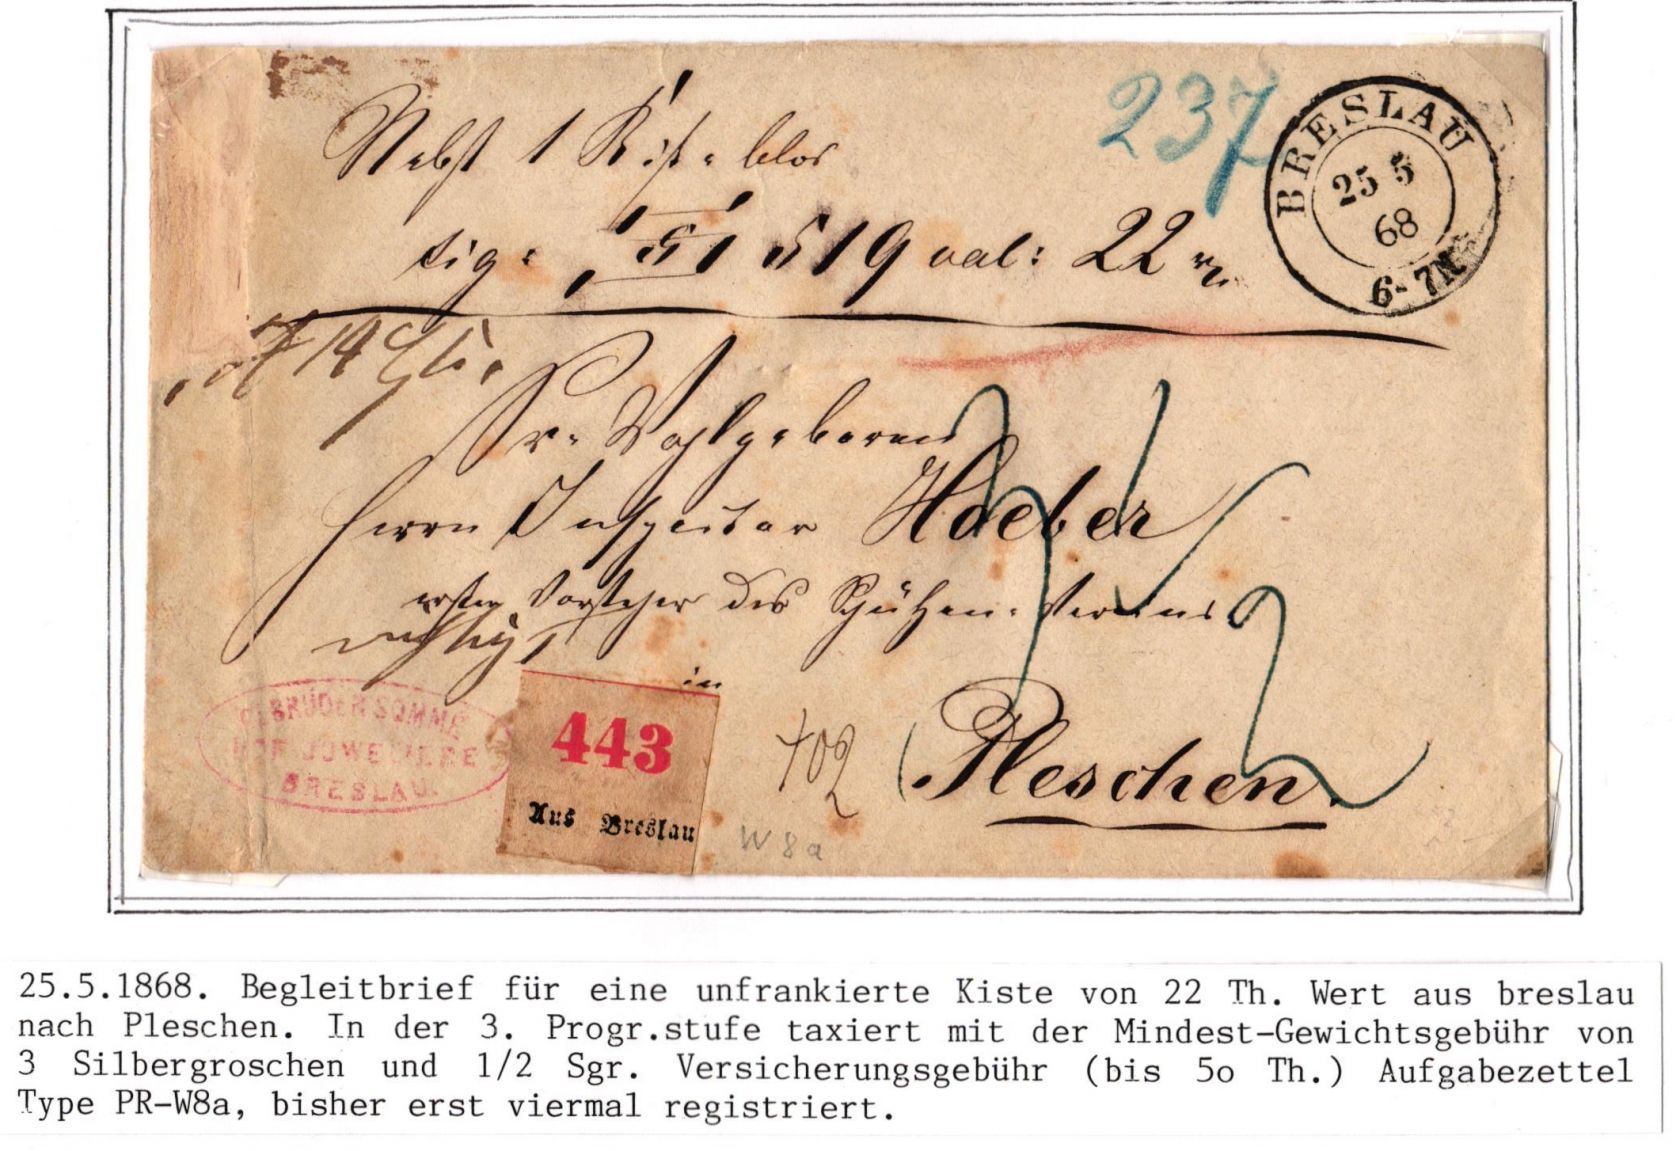 237
BRESLAU
25 5
68
6-7N
Nebst 1 Kiste blos
sig: 519 val: 22
14
Sr. Wohlgeboren
Herrn Inspector Hoeber
ersten Vorsteher des Schützen-Vereins
in
Pleschen.
GEBRÜDER SOMMÉ
HOF JUWELIERE
BRESLAU.
443
Aus Breslau
402
W8a
25.5.1868. Begleitbrief für eine unfrankierte Kiste von 22 Th. Wert aus breslau
nach Pleschen. In der 3. Progr.stufe taxiert mit der Mindest-Gewichtsgebühr von
3 Silbergroschen und 1/2 Sgr. Versicherungsgebühr (bis 5o Th.) Aufgabezettel
Type PR-W8a, bisher erst viermal registriert.